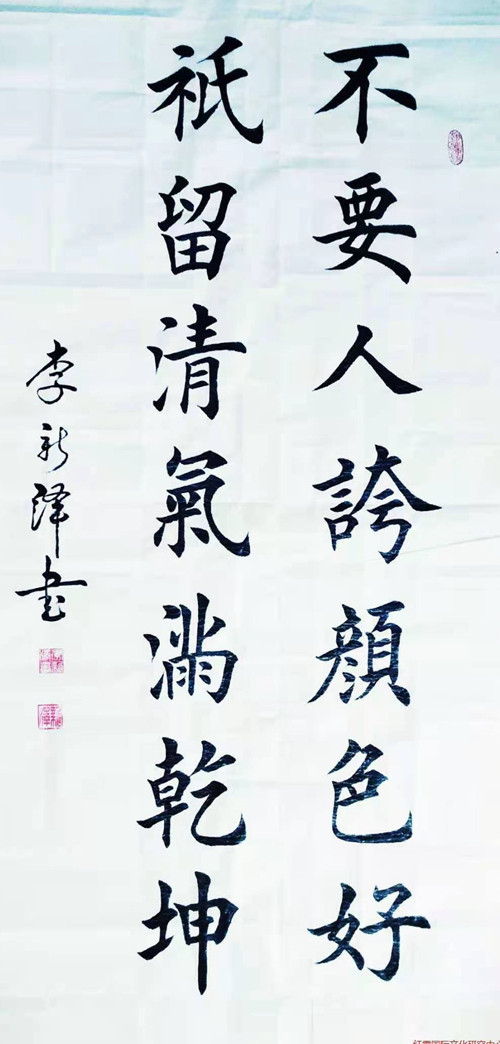 不要人誇顔色好
祇留清氣滿乾坤
李新泽書